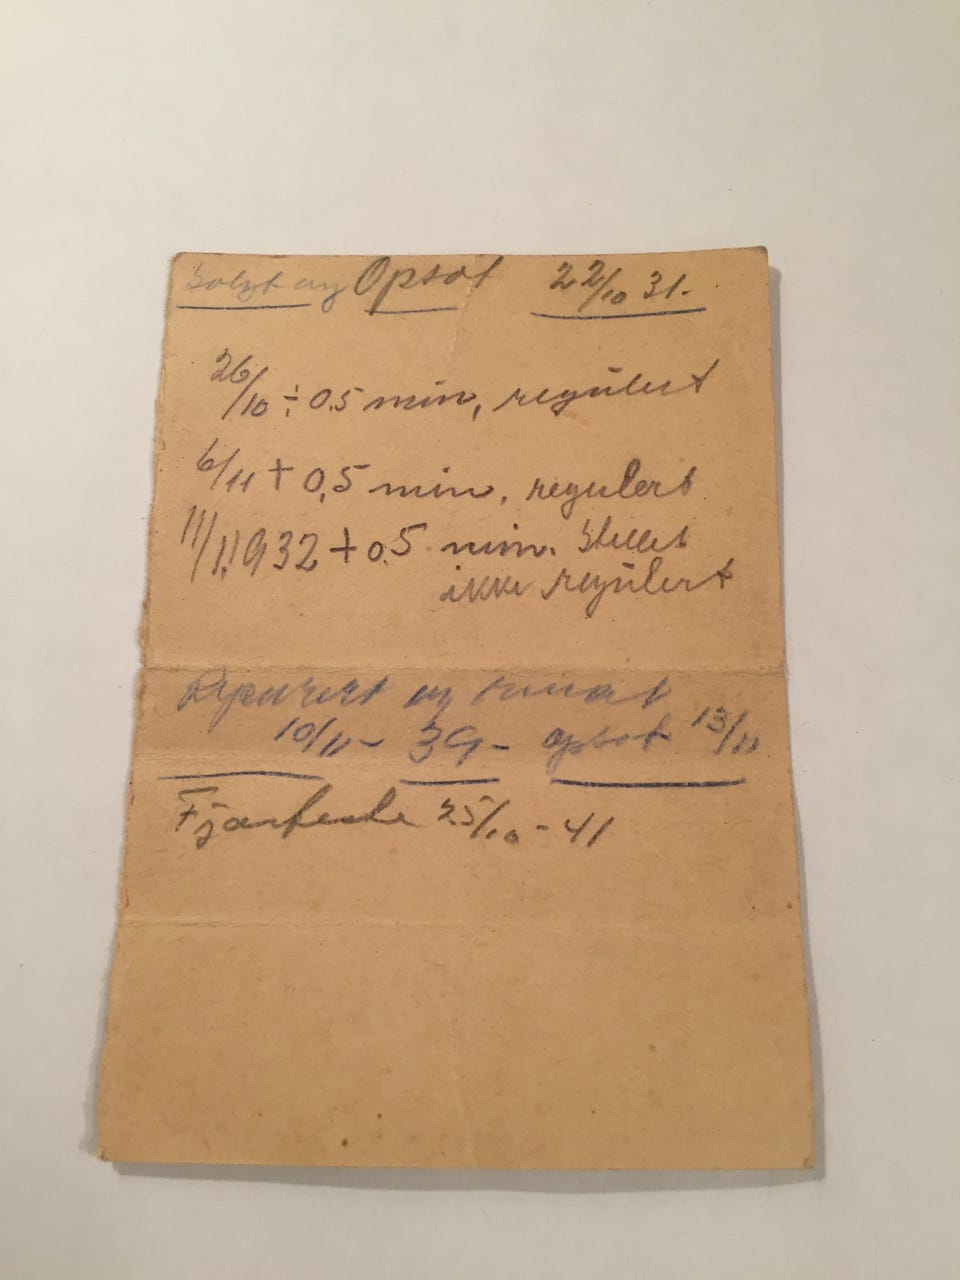 Solgt og Opsat 22/10 31.
26/10 ÷ 0.5 min, regulert
6/11 + 0,5 min. regulert
11/1.1932 + 0.5 min. Stillet
ikke regulert
Reparert og
10/11 - 39 - opsat 13/11
25/10 - 41